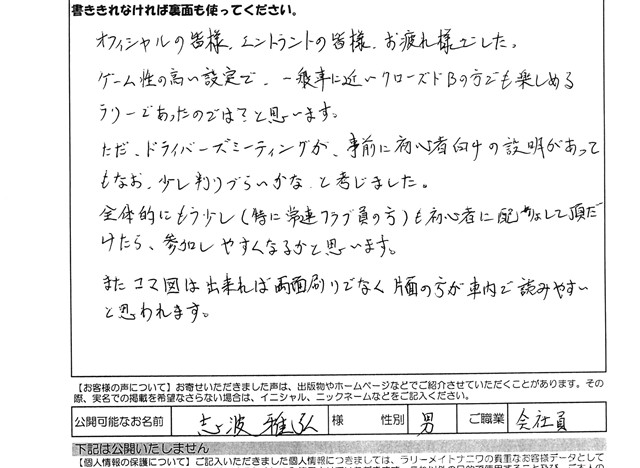 書ききれなければ裏面も使ってください。
オフィシャルの皆様、エントラントの皆様、お疲れ様でした。
ゲーム性の高い設定で、一般車に近いクローズドBの方でも楽しめる
ラリーであったのでは?と思います。
ただ、ドライバーズミーティングが、事前に初心者向けの説明があって
もなお、少し判りづらいかな、と考じました。
全体的にもう少し(特に常連クラブ員の方)も初心者に配慮して頂だ
けたら、参加しやすくなるかと思います。
またコマ図は出来れば両面刷りでなく片面の方が車内で読みやすい
と思われます。
【お客様の声について】お寄せいただきました声は、出版物やホームページなどでご紹介させていただくことがあります。その
際、実名での掲載を希望なさらない場合は、イニシャル、ニックネームなどをご記入ください。
公開可能なお名前 志波 雅弘 様 性別 男 ご職業 会社員
下記は公開いたしません
【個人情報の保護について】ご記入いただきました個人情報につきましては、ラリーメイトナニワの貴重なお客様データとして